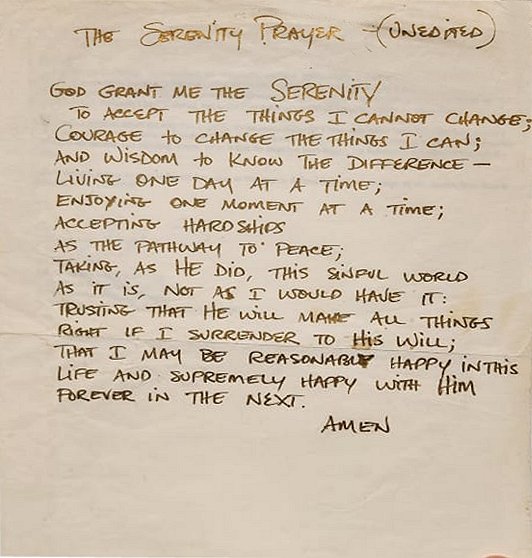 THE SERENITY PRAYER - (UNEDITED)
GOD GRANT ME THE SERENITY
TO ACCEPT THE THINGS I CANNOT CHANGE;
COURAGE TO CHANGE THE THINGS I CAN;
AND WISDOM TO KNOW THE DIFFERENCE —
LIVING ONE DAY AT A TIME;
ENJOYING ONE MOMENT AT A TIME;
ACCEPTING HARDSHIPS
AS THE PATHWAY TO PEACE;
TAKING, AS HE DID, THIS SINFUL WORLD
AS IT IS, NOT AS I WOULD HAVE IT:
TRUSTING THAT HE WILL MAKE ALL THINGS
RIGHT IF I SURRENDER TO HIS WILL;
THAT I MAY BE REASONABLY HAPPY IN THIS
LIFE AND SUPREMELY HAPPY WITH HIM
FOREVER IN THE NEXT.
AMEN